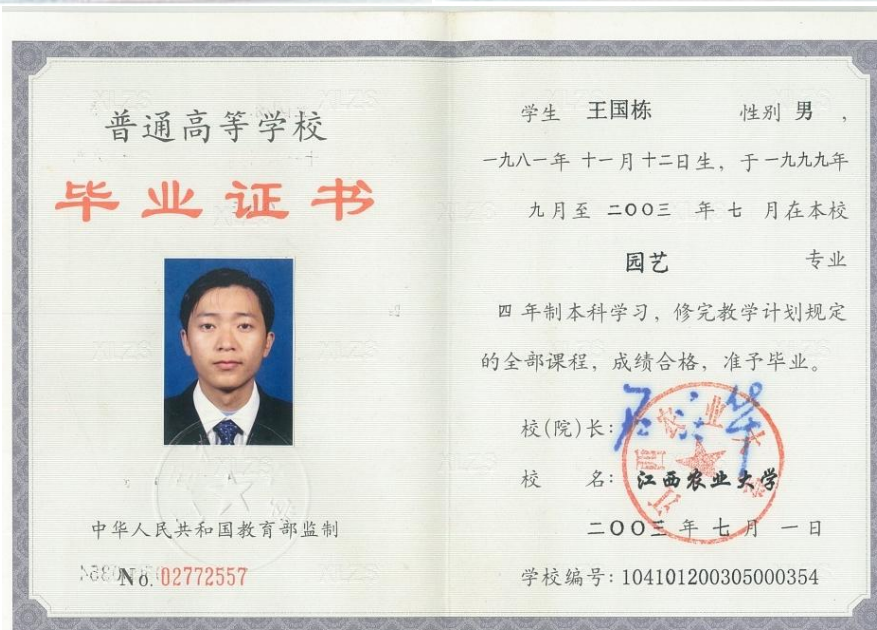 普通高等学校
毕业证书
中华人民共和国教育部监制
No. 02772557
学生 王国栋 性别 男 ,
一九八一年 十一月 十二日生，于 一九九九年
九月至 二〇〇三 年 七 月在本校
园艺 专业
四 年制本科学习，修完教学计划规定
的全部课程，成绩合格，准予毕业。
校(院)长：
校 名：江西农业大学
二〇〇三 年 七 月 一 日
学校编号：104101200305000354
江西农业大学